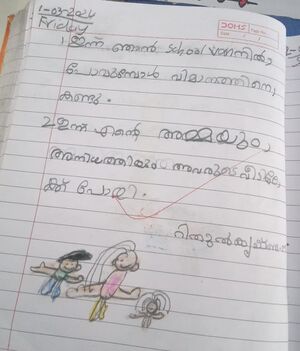 1-03-2024
Friday
DOMS
1. ഇന്ന് ഞാൻ school വാനിൽ
പോവുമ്പോൾ വിമാനത്തിനെ
കണ്ടു.
2. ഇന്ന് എന്റെ അമ്മയും
അനിയത്തിയും അവരുടെ വീട്ടിലേ
ക്ക് പോയി.